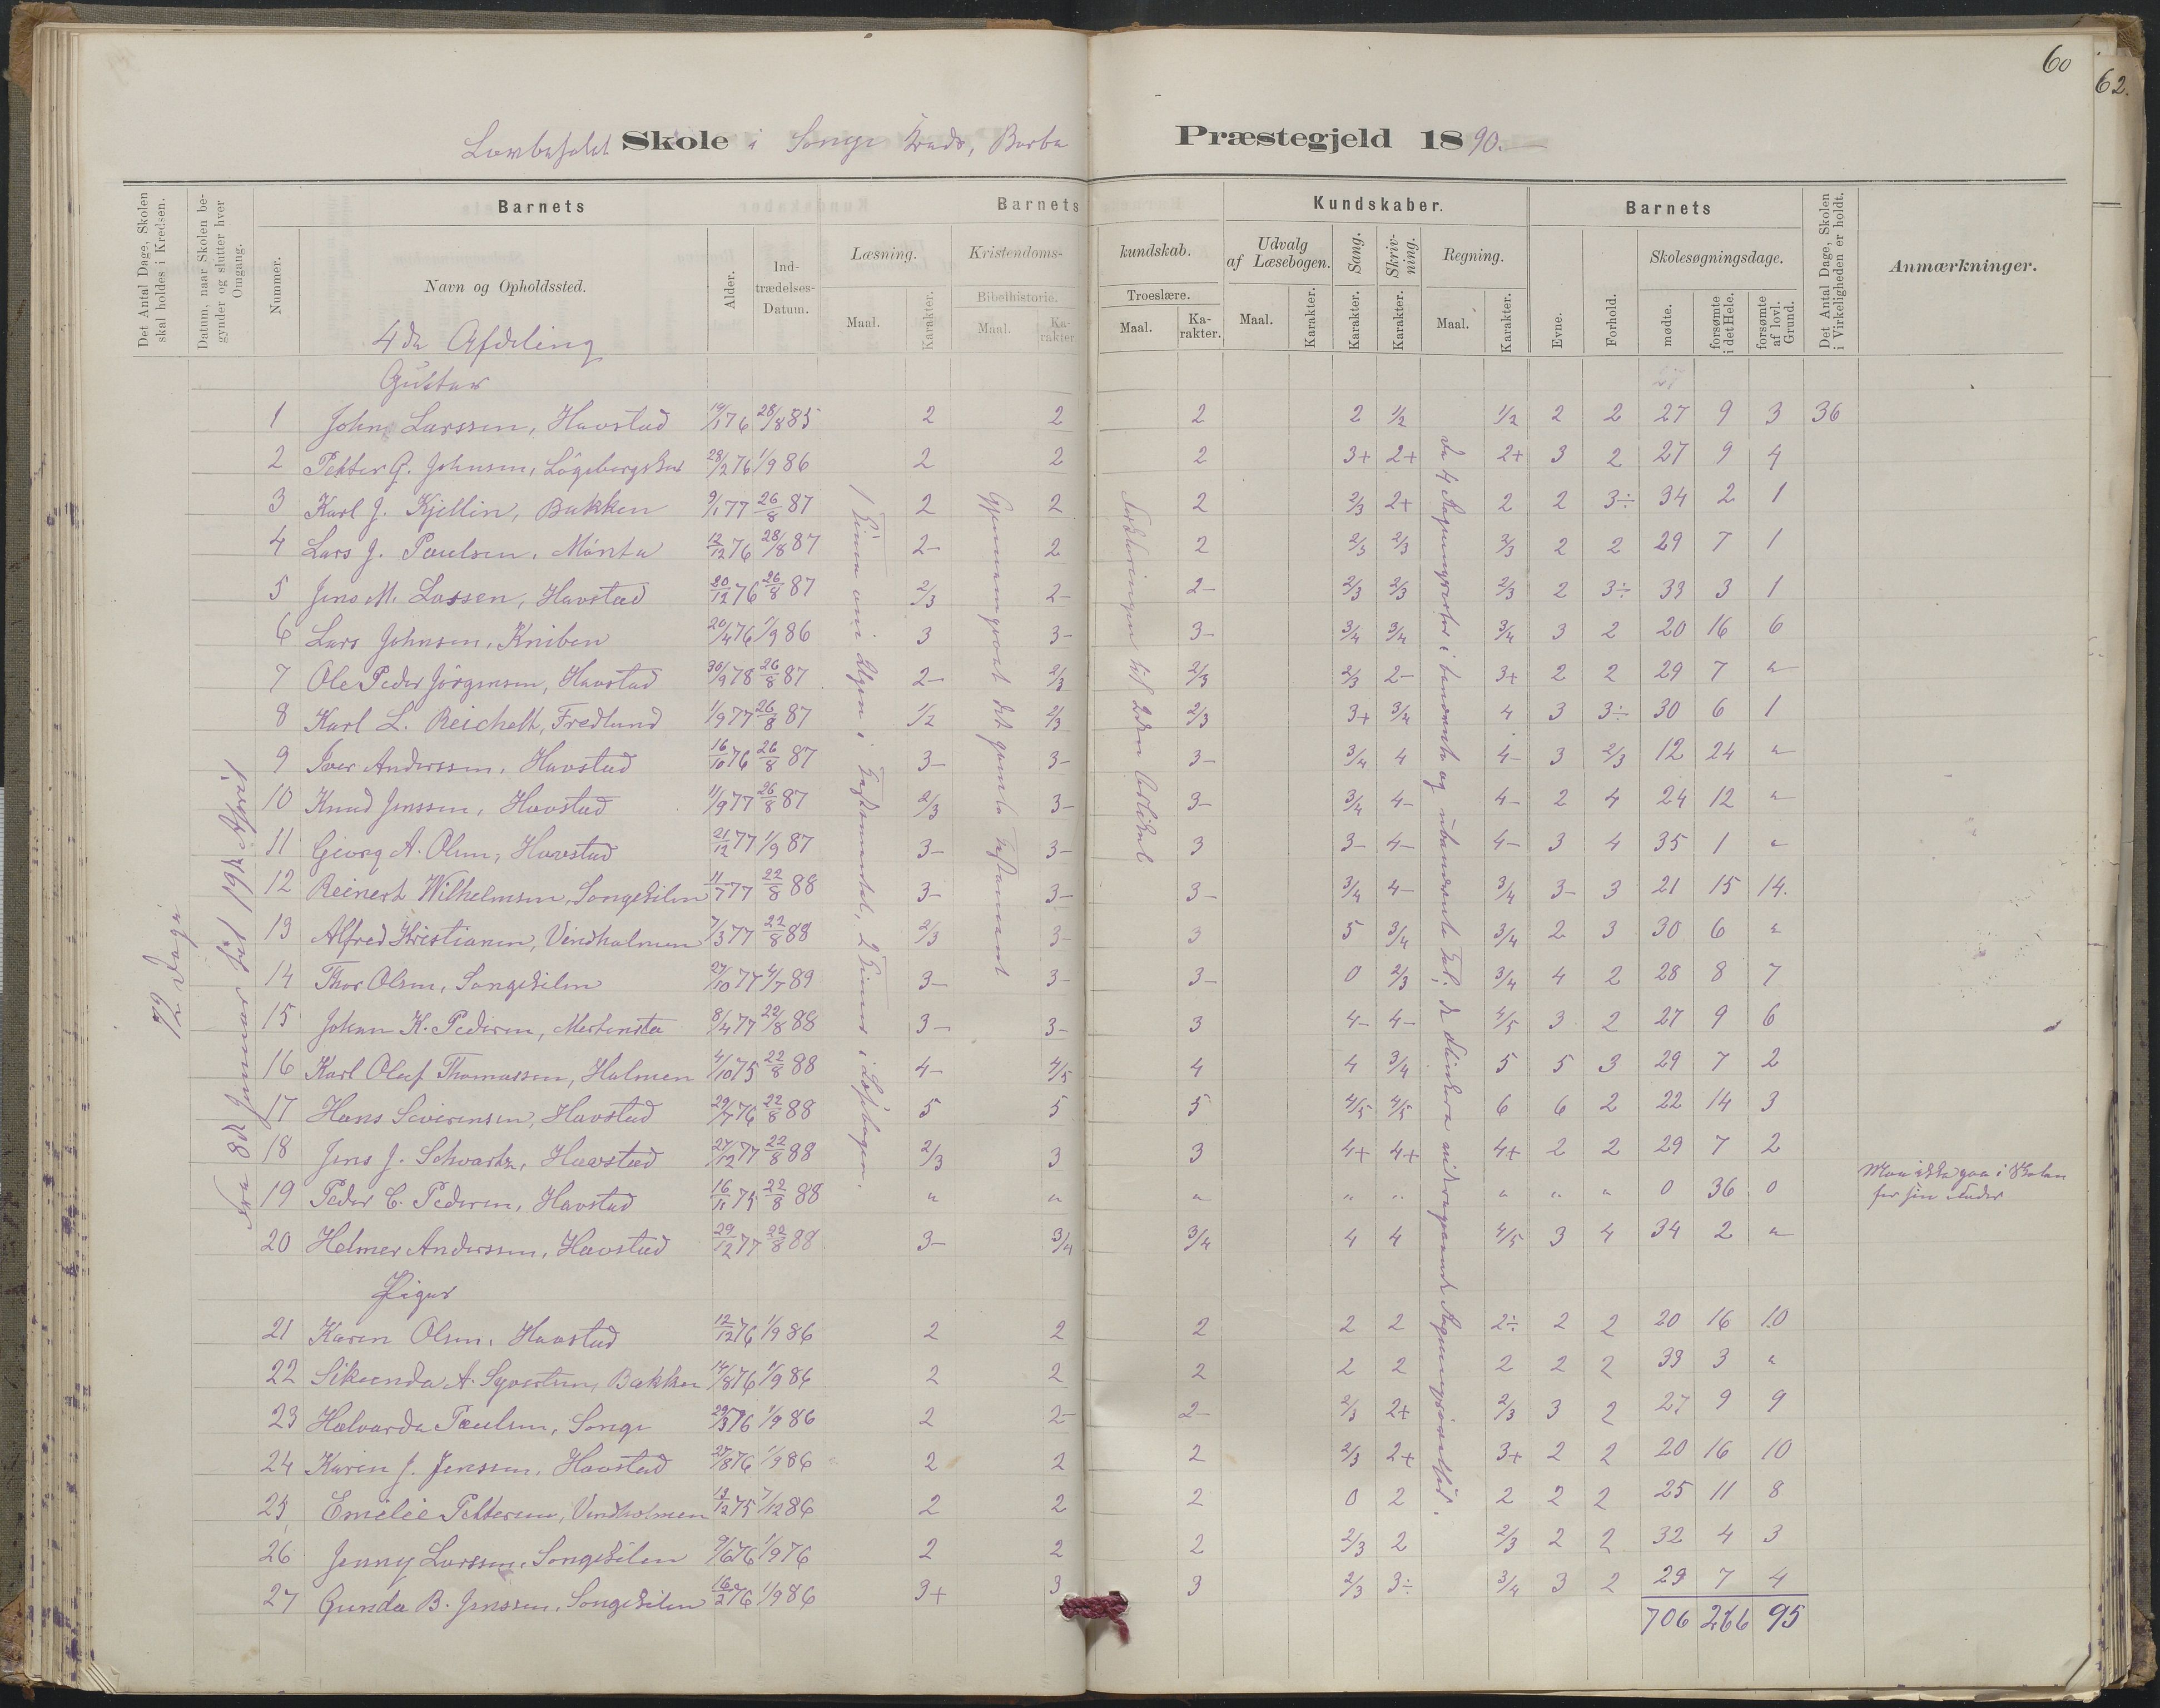 60
62.
Lovbefalet Skole i Songe Kreds, Barbu Præstegjeld 1890.
Det Antal Dage, Skolen skal holdes i Kredsen.
Datum, naar Skolen begynder og slutter hver Omgang.
Barnets
Nummer.
Navn og Opholdssted.
Alder.
Indtrædelses-Datum.
Barnets
Læsning.
Maal.
Karakter.
Kristendoms-
kundskab.
Bibelhistorie.
Maal.
Karakter.
Troeslære.
Maal.
Karakter.
Kundskaber.
Udvalg af Læsebogen.
Maal.
Karakter.
Sang.
Karakter.
Skrivning.
Karakter.
Regning.
Maal.
Karakter.
Barnets
Evne.
Forhold.
Skolesøgningsdage.
mødte.
forsømte i det Hele.
forsømte af lovl. Grund.
Det Antal Dage, Skolen i Virkeligheden er holdt.
Anmærkninger.
4de Afdeling
Gutter
1 John Larssen, Havstad 19/1 76 28/8 85 2 2 2 2 1/2 1/2 2 2 27 9 3 36
2 Petter G. Johnsen, 28/2 76 1/9 86 2 2 2 3+ 2+ 2+ 3 2 27 9 4
3 Karl J. Kjellin, Bakken 9/1 77 26/8 87 2 2 2 2/3 2+ 2 2 3÷ 34 2 1
4 Lars J. Paulsen, 12/12 76 28/8 87 2- 2 2 2/3 2/3 2/3 2 2 29 7 1
5 Jens M. Lassen, Havstad 20/12 76 26/8 87 2/3 2- 2- 2/3 2/3 2/3 2 3÷ 33 3 1
6 Lars Johnsen, Kniben 20/4 76 1/9 86 3 3- 3- 3/4 3/4 3/4 3 2 20 16 6
7 Ole Peder Jörgensen, Havstad 30/9 78 26/8 87 2- 2/3 2/3 2/3 2- 3+ 2 2 29 7 "
8 Karl L. Reichelt, Fredlund 1/9 77 26/8 87 1/2 2/3 2/3 3+ 3/4 4 3 3÷ 30 6 1
9 Iver Anderssen, Havstad 16/10 76 26/8 87 3- 3- 3- 3/4 4 4- 3 2/3 12 24 "
10 Knud Jenssen, Havstad 11/9 77 26/8 87 2/3 3- 3- 3/4 4- 4- 2 4 24 12 "
11 Georg A. Olsen, Havstad 21/12 77 1/9 87 3- 3- 3 3- 4- 4- 3 4 35 1 "
12 Reinert Wilhelmsen, Songekilen 11/7 77 22/8 88 3- 3- 3- 3/4 4- 3/4 3- 3 21 15 14.
13 Alfred Kristiansen, Vindholmen 7/3 77 22/8 88 2/3 3- 3 5 3/4 3/4 2 3 30 6 "
14 Thor Olsen, Songekilen 27/10 77 4/7 89 3- 3- 3- 0 2/3 3/4 4 2 28 8 7
15 Johan K. Pedersen, 8/4 77 22/8 88 3- 3- 3 4- 4- 4/5 3 2 27 9 6
16 Karl Olaf Thomassen, Holmen 4/10 75 22/8 88 4- 4/5 4 4 3/4 5 5 3 29 7 2
17 Hans Severinsen, Havstad 29/7 76 22/8 88 5 5 5 4/5 4/5 6 6 2 22 14 3
18 Jens J. Schvartz, Havstad 27/12 77 22/8 88 2/3 3 3 4+ 4+ 4+ 2 2 29 7 2
19 Peder C. Pedersen, Havstad 16/11 75 22/8 88 " " " " " " " " 0 36 0 Maa ikke gaa i Skolen for sin Fader
20 Helmer Anderssen, Havstad 29/12 77 22/8 88 3- 3/4 3/4 4 4 4/5 3 4 34 2 "
Piger
21 Karen Olsen, Havstad 12/12 76 1/9 86 2 2 2 2 2 2÷ 2 2 20 16 10
22 A. Syvertsen, Bakken 14/8 76 1/9 86 2 2 2 2 2 2 2 2 33 3 "
23 Halvarda Paulsen, Songe 29/3 76 1/9 86 2 2- 2- 2/3 2+ 2/3 3 2 27 9 9
24 Karen J. Jenssen, Havstad 27/8 76 1/9 86 2 2 2 2/3 2+ 3+ 2 2 20 16 10
25 Emelie Pettersen, Vindholmen 13/12 75 7/12 86 2 2 2 0 2 2 2 2 25 11 8
26 Jenny Larssen, Songekilen 9/6 76 1/9 76 2 2 2 2/3 2 2/3 2 2 32 4 3
27 Gunda B. Jenssen, Songekilen 16/2 76 1/9 86 3+ 3 3 2/3 3÷ 3/4 3 2 29 7 4
706 266 95
72 Dage
Fra 8de Januar til 19de April
1 Time om Ugen i Testamentet, 2 Timer i Læsebogen.
Gjennemgaaet det gamle Testament
Forklaringen til 2den Artikel
De 4 Regningsarter i benævnte og ubenævnte Tal;